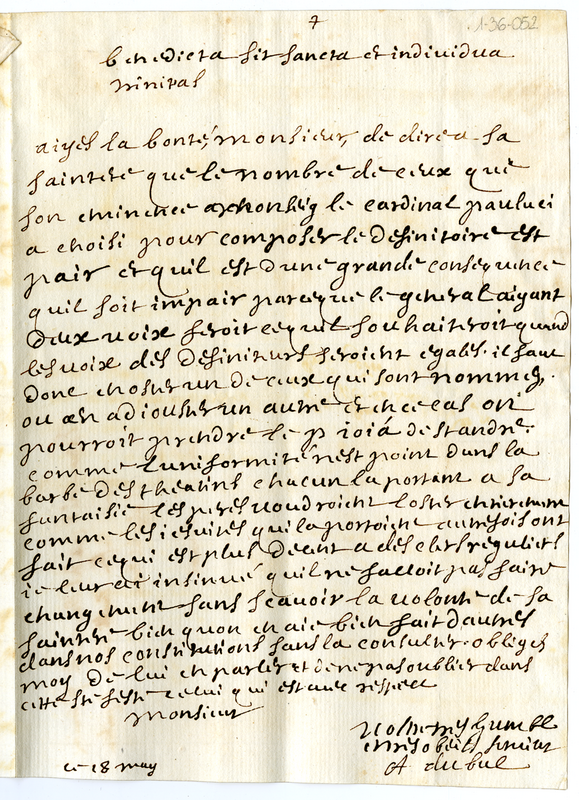 1-36-052
benedicta sit sancta et individua
trinitas
aiyes la bonté, monsieur, de dire a sa
sainteté que le nombre de ceux que
son eminence le cardinal pauluci
a choisi pour composer le definitoire est
pair et quil est dune grande consequence
quil soit impair parceque le general aiyant
deux voix feroit cequil souhaiteroit quand
les voix des definiteurs seroient egales. il faut
donc choisir un de ceux qui sont nommez,
ou en adiouster un autre et en ce cas on
pourroit prendre le p ioiá de st andré.
comme luniformité nest point dans la
barbe des theatins chacun la portant a sa
fantaisie les peres voudroient loster entierement
comme les iesuites qui la portoient autrefois ont
fait ce qui est plus decent a des clers reguliers
ie leur ai insinué quil ne falloit pas faire
changement sans scavoir la volonté de sa
sainteté bien quon en aie bien fait dautres
dans nos constitutions sans la consulter. obliges
moy de lui en parler et de ne pas oublier dans
cette feste celui qui est avec respect
monsieur
votre tres humble
et tres obeiss serviteur
ce 18 may